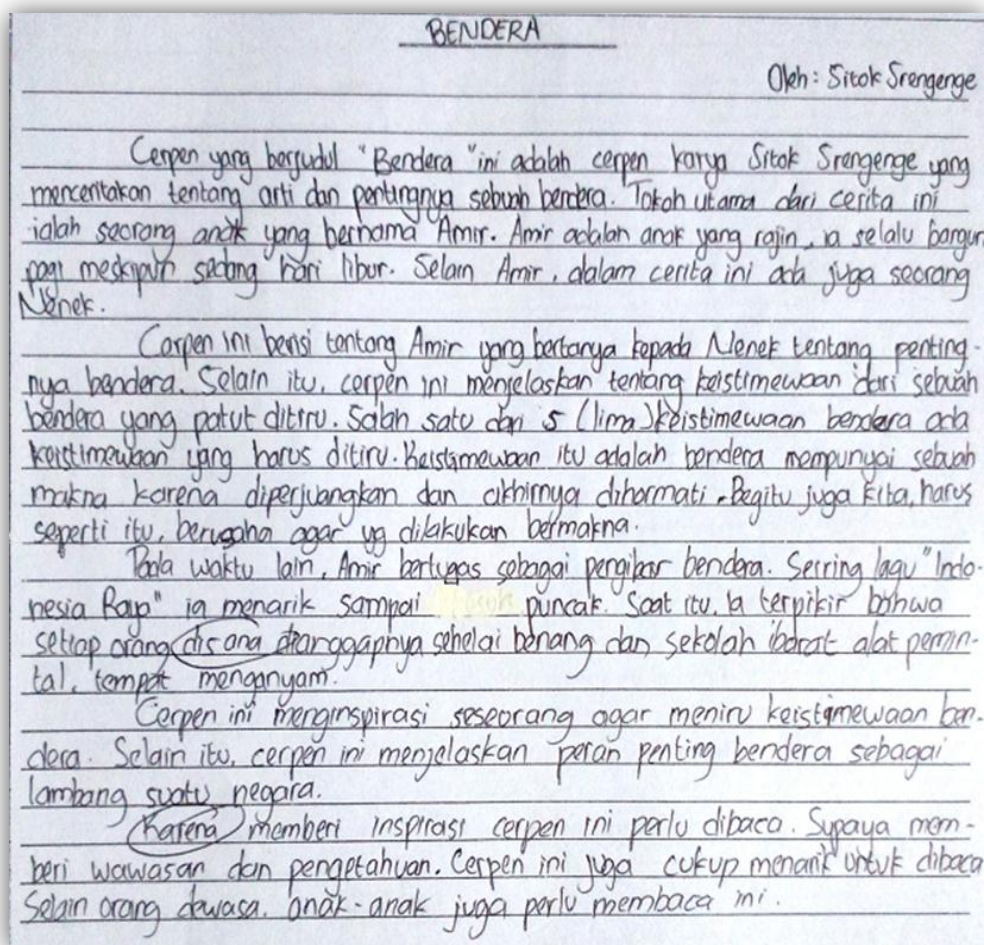 BENDERA
Oleh : Sitok Srengenge
Cerpen yang berjudul "Bendera" ini adalah cerpen karya Sitok Srengenge yang
menceritakan tentang arti dan pentingnya sebuah bendera. Tokoh utama dari cerita ini
ialah seorang anak yang bernama Amir. Amir adalah anak yang rajin, ia selalu bangun
pagi meskipun sedang hari libur. Selain Amir, dalam cerita ini ada juga seorang
Nenek.
Cerpen ini berisi tentang Amir yang bertanya kepada Nenek tentang penting-
nya bendera. Selain itu, cerpen ini menjelaskan tentang keistimewaan dari sebuah
bendera yang patut ditiru. Salah satu dari 5 (lima) keistimewaan bendera ada
keistimewaan yang harus ditiru. Keistimewaan itu adalah bendera mempunyai sebuah
makna karena diperjuangkan dan akhirnya dihormati. Begitu juga kita, harus
seperti itu, berusaha agar yg dilakukan bermakna.
Pada waktu lain, Amir bertugas sebagai pengibar bendera. Seiring lagu "Indo-
nesia Raya" ia menarik sampai puncak. Saat itu, ia terpikir bahwa
setiap orang disana dianggapnya sehelai benang dan sekolah ibarat alat pemin-
tal, tempat menganyam.
Cerpen ini menginspirasi seseorang agar meniru keistimewaan ben-
dera. Selain itu, cerpen ini menjelaskan peran penting bendera sebagai
lambang suatu negara.
Karena memberi inspirasi cerpen ini perlu dibaca. Supaya mem-
beri wawasan dan pengetahuan. Cerpen ini juga cukup menarik untuk dibaca
Selain orang dewasa, anak-anak juga perlu membaca ini.